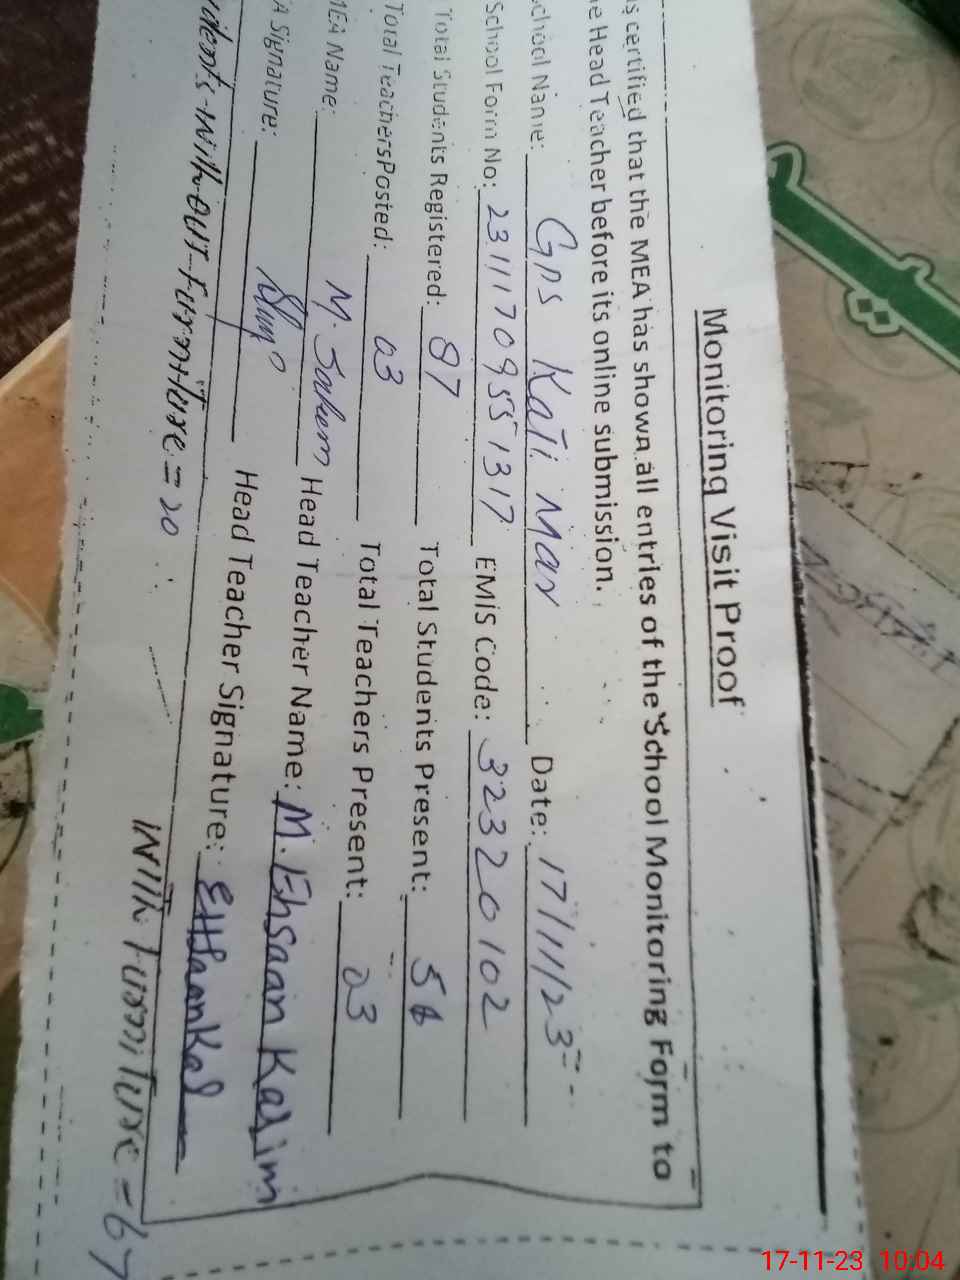 Monitoring Visit Proof
s certified that the MEA has shown all entries of the School Monitoring Form to
e Head Teacher before its online submission.
chool Name: Gps Kati Mar Date: 17/11/23
School Form No: 23111709551317 EMIS Code: 32320102
Total Students Registered: 87 Total Students Present: 56
Total Teachers Posted: 03 Total Teachers Present: 03
MEA Name: M. Saleem Head Teacher Name: M. Ehsaan Karim
A Signature: Head Teacher Signature:
udents without Furniture = 20
With Furniture = 67
17-11-23 10:04